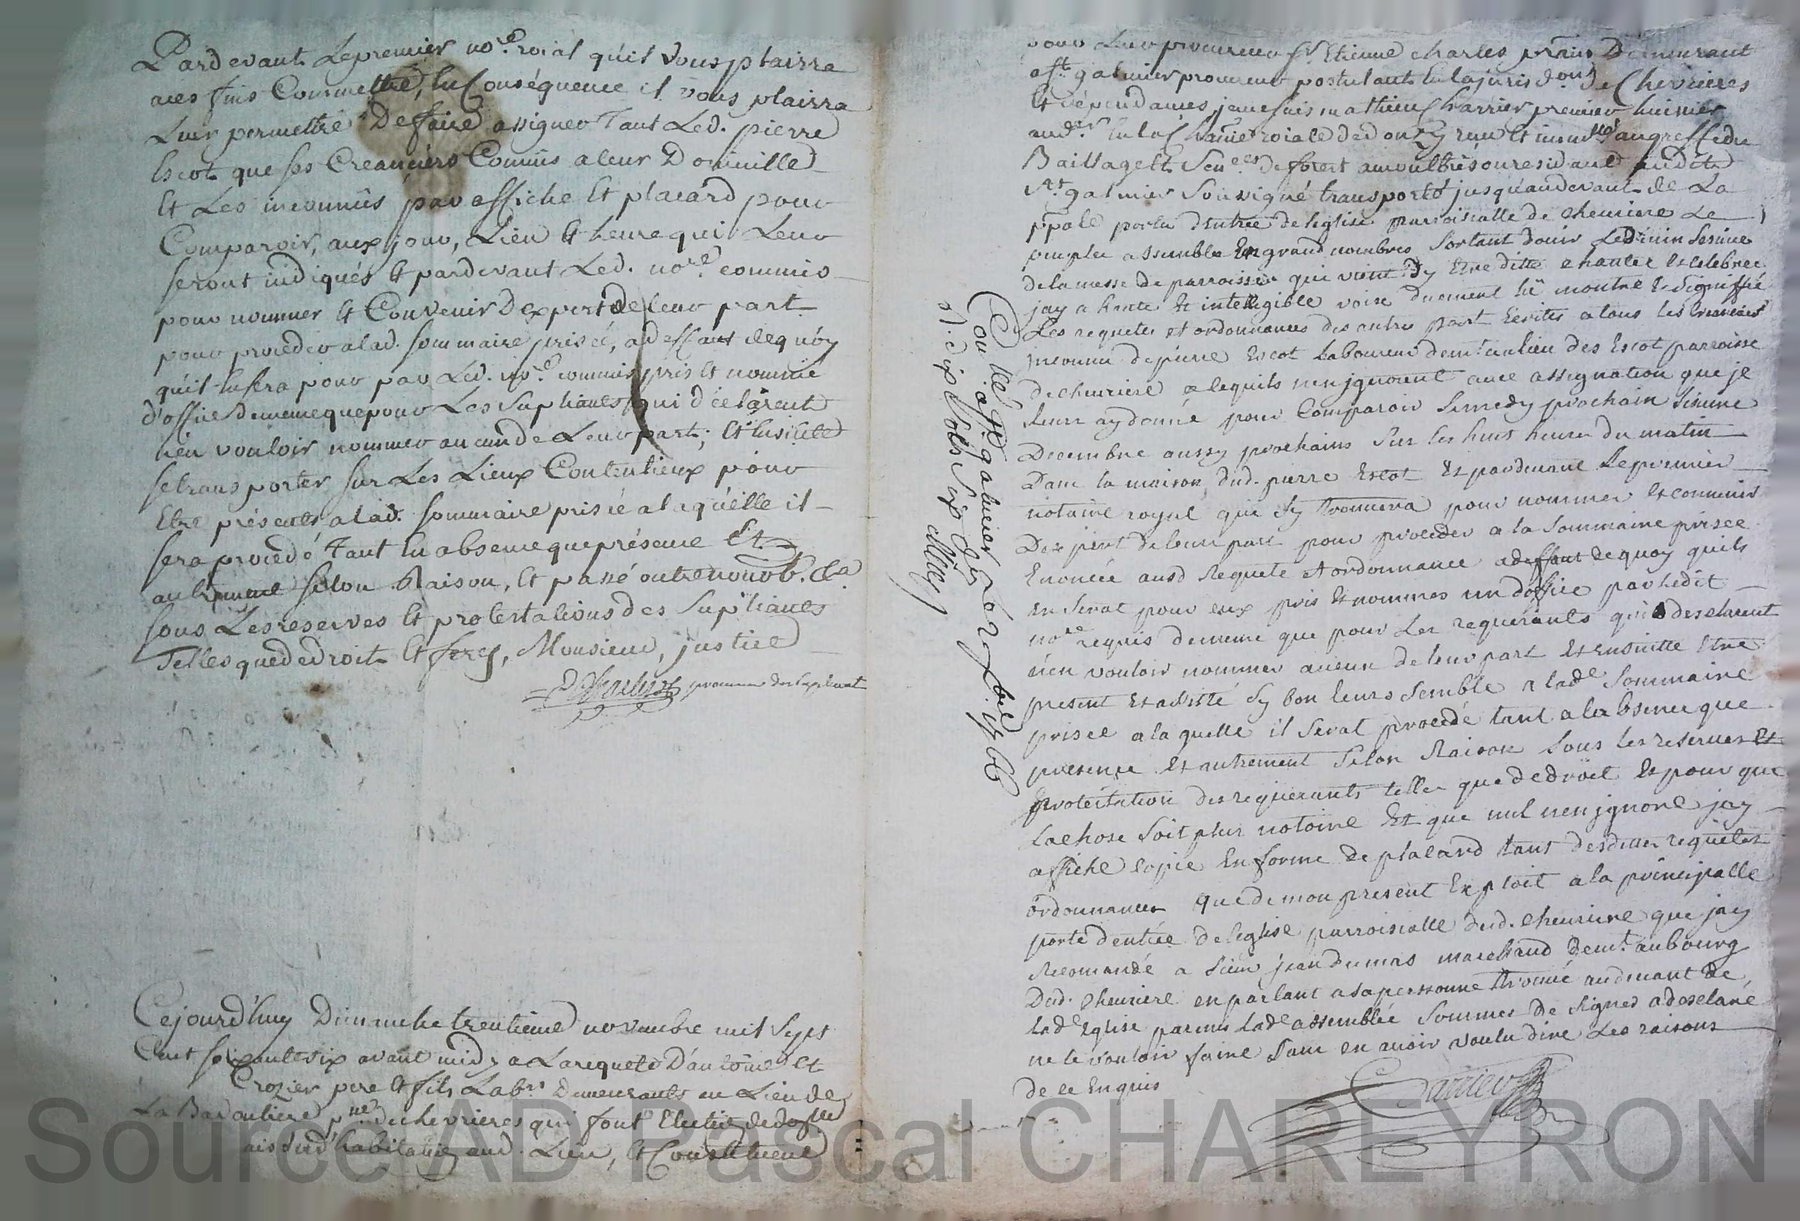 Pardevant Lepremier no.re roial qu'il vous plairra
aces fins Commettre, En Conséquence il vous plairra
Leur permettre De faire assigner Tant Led. pierre
Escot que ses Creanciers Connus a leur Domicille
Et Les inconnûs par affiche Et placard pour
Comparoir, aux jour, Lien Et heure qui Leur
seront indiqués Et pardevant Led. no.re commis
pour nommer Et Convenir D'expert de leur part
pour proceder a lad. sommaire prisée, a deffaut dequoy
qu'il En sera pour par Led. no.re commis pris Et nommé
d'office De meme que pour Les Supliants qui déclarent
n'en vouloir nommer aucun de Leur part, Et Ensuitte
se transporter sur Les Lieux Contentieux pour
Etre présents a lad. sommaire prisée a laquéille il
sera procedé Tant En absence que présence Et
autrement selon Raison, Et passé outre nonob. &a
sous Les reserves Et protestations des Supliants
Telles que de droit Et ferez, Monsieur, justice
procureur des supliants
Cejourd'huy Dimanche trentieme novembre mil Sept
Cent soixante six avant midy a La requete D'antoine Et
Crozier pere Et fils Lab.rs Demeurants au Lieu de
La Badoutiere p.sse de chevrieres qui font Election de domicille
Lieu, Et Constituent
pour Leur procureur S.r Etienne charles Demeurant
a S.t galmier procureur postulant En la jurisd.on De Chevrieres
Et dépendances, je me suis mathieu Charrier premier huissier
aud.er En la Roiale de donzy rue Et imm.lé au greffe du
Baillage Et Sen.ée de forest a montbrison residant aud.
S.t galmier Soussigné transporté jusqu'au devant de La
ppale porte d'Entrée de l'eglise parroissialle de cheuriere Le
peuple assemblé En grand nombres Sortant d'ouir Le divin Servine
de la messe de parroisse qui vient d'y Etre ditte chantée et celebrée
jay a haute Et intelligible voix duement lü montré Et Signiffié
Les requetes et ordonnances des autres part Ecrites a tous les Creanciers
inconnu de pierre Escot Laboureur dem.t au lieu des Escot parroisse
De cheuriere a lequils n'en jgnorent avec assignation que je
leurs ay donné pour Comparoir Samedy prochain Sixieme
Decembre aussy prochains Sur les huit heures du matin
Dans la maison dud. pierre Escot Et pardevant Le premier
notaire royal qui sy trouuera pour nommer Et convenir
D'expert de leur part pour proceder a la Sommaire prisee
Enoncée ausd Requete Et ordonnance a deffaut de quoy quils
En Serat pour eux pris Et nommes un d'office par ledit
no.re requis de meme que pour Les requerants qui desclarent
n'en vouloir nommer aucun de leur part Et Ensuitte Etre
present Et assisté Sy bon leurs Semble a lad.e Sommaire
prisée a laquelle il Serat procedé tant a labsence que
presence Et autrement Selon Raison Sous les reserves Et
protestation des requerants telles que de droit Et pour que
La chose Soit plus notoire Et que nul n'en jgnore jay
affiché copie En forme de placard tant desdittes requetes
ordonnances que de mon present Exploit a la principalle
porte dentrée de leglise parroissialle dud. cheuriere que jay
Recomandé a Sieur jean dumas marchand dem.t au bourg
Dud. cheuriere en parlant a sa personne trouvé au devant de
Lad.e Eglise parmis Lad.e assemblée Sommés de signer a desclaré
ne le vouloir faire Sans en avoir voulu dire Les raisons
De ce Enquis
Charrier
Con.lé a S.t galmier Le 2 Xbre 1766
R. dix Sols Six d.
Source AD Pascal CHAREYRON